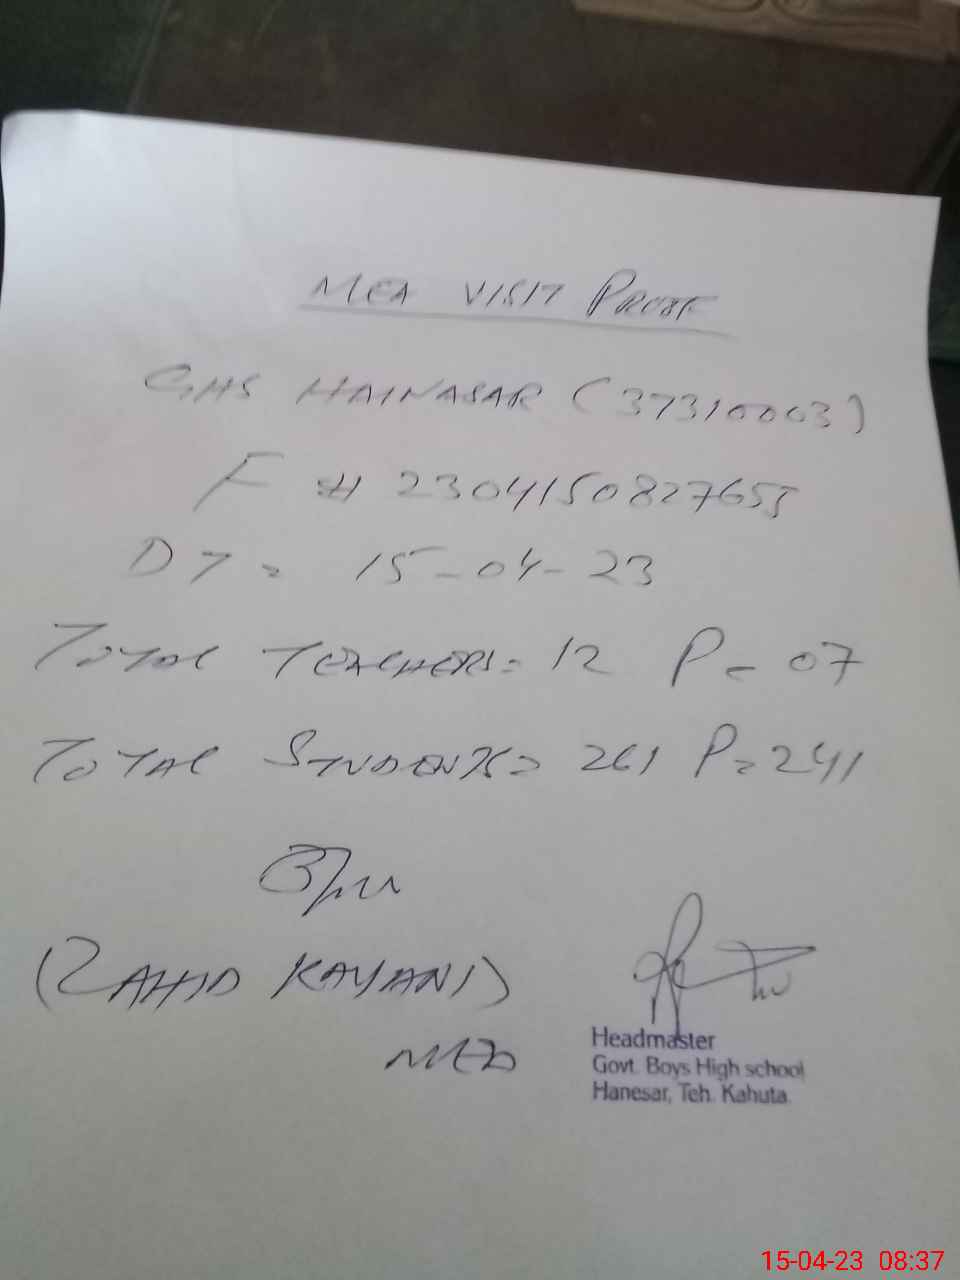 MEA VISIT PROOF
GHS HAINASAR (37310003)
F # 2304150827655
DT = 15-04-23
TOTAL TEACHERS = 12 P = 07
TOTAL STUDENTS = 261 P = 241
(ZAHID KAYANI)
MEA
Headmaster
Govt. Boys High school
Hanesar, Teh. Kahuta
15-04-23 08:37